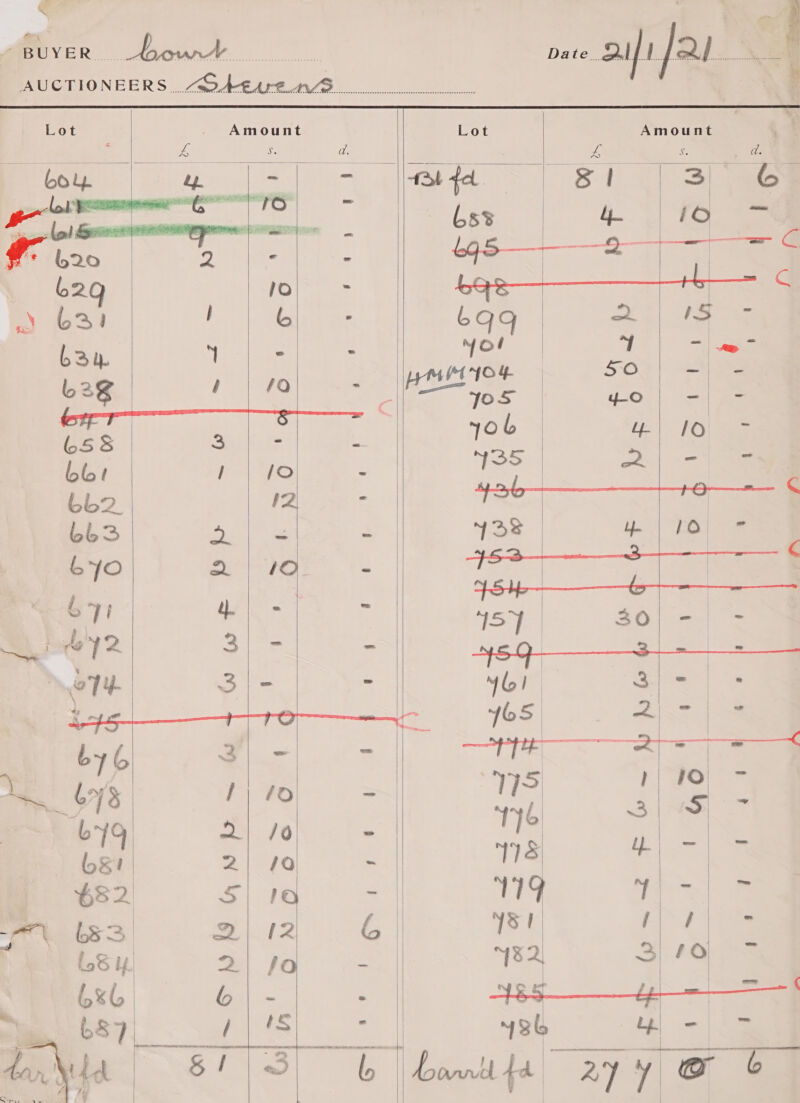 BUYER Court
Date 21/1/21
AUCTIONEERS Stevens
Lot Amount
£ s. d.
604 4 - -
6 10 -
615 9 - -
620 2 - -
629 10 -
631 1 6 -
634 7 - -
638 1 10 -
641 8 -
658 3 - -
661 1 10 -
662 12 -
663 2 - -
670 2 10 -
671 4 - -
672 3 - -
674 3 - -
675 1 10 -
676 3 - -
678 1 10 -
679 2 10 -
681 2 10 -
682 5 10 -
683 2 12 6
684 2 10 -
686 6 - -
687 1 15 -
Car'd fd 81 3 6
Lot Amount
£ s. d.
Bt fd 81 3 6
688 4 10 -
695 2 - -
698 16 -
699 2 15 -
701 7 - -
HMM 704 50 - -
705 40 - -
706 4 10 -
735 2 - -
736 10 -
738 4 10 -
753 3 - -
754 6 - -
757 30 - -
759 3 - -
761 3 - -
765 2 - -
774 2 - -
775 1 10 -
776 3 5 -
778 4 - -
779 7 - -
781 1 1 -
782 3 10 -
785 4 - -
786 4 - -
Carrid fd 277 0 6